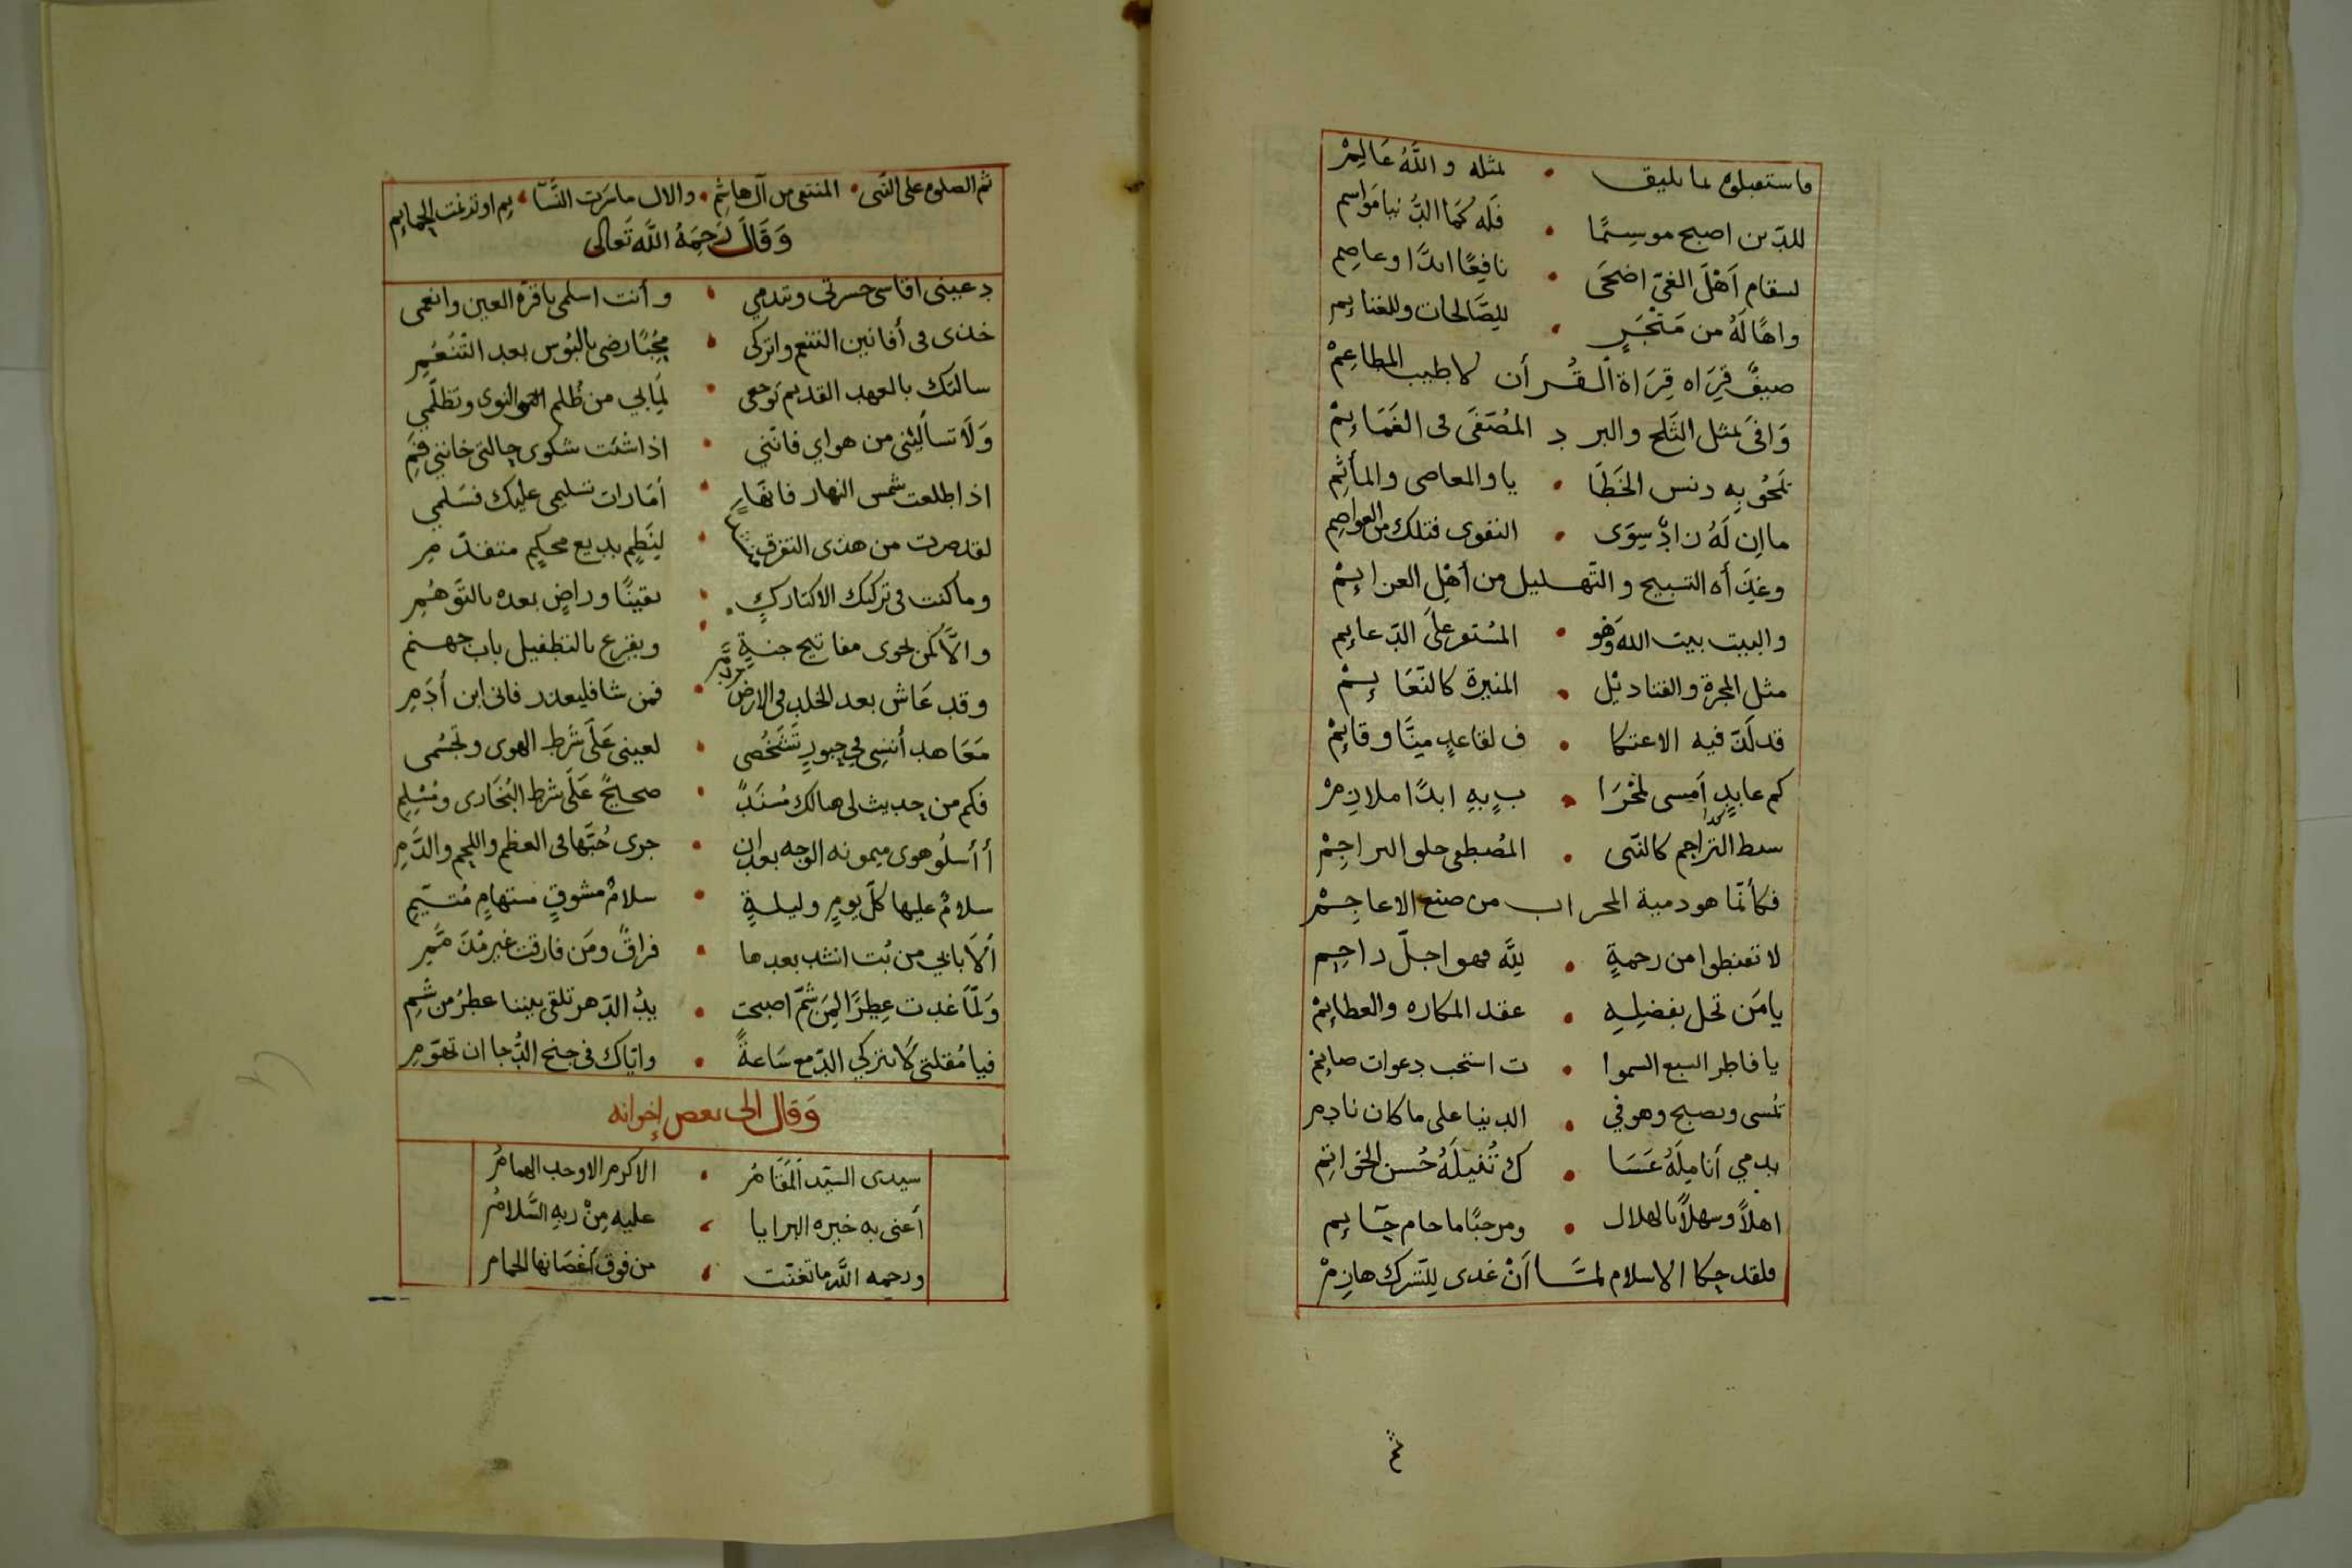 فاستقبلوه بما يليق • بمثله والله عالِمْ
للدين اصبح موسِمًا • فله كما الدُّنيا مَواسم
لسقام اَهْل الغيّ اضحَى • نافِعًا ابدًا وعاصِم
واهًا لَهُ من مَتْجَرٍ • للِصَّالحات وللغنايم
ضيفٌ قِرَاه قِرَاة القُرأن لا طيب المطاعِمْ
وَافى بمثل الثَلج والبرد المُصَفَى فى الغَمَايمْ
تَمحُو بِه دنس الخَطَا • يا والمعاصى والمأثِم
ما اِن لَهُ زادٌ سِوَى • التقوى فتلك من العواصِم
وغِذَأه التسبيح والتَهليل من أهْل العزايمْ
والبيت بيت الله وَهْو • المُستقر علَى الدّعايم
مثل المجرة والقناديْل • المنيرة كالنَعَايمْ
قد لَذّ فيه الاعتكا • ف لقاعدٍ منَّا وقايِمْ
كم عابدٍ اَمسى لمحْرَا • بٍ بهِ ابدًا ملازِمْ
سبط التراجم كالنَبى • المُصطفى حلو البراجِمْ
فكأنّما هو دمية المحراب من صنع الاعاجِمْ
لا تقنطوا من رحمةٍ • للَّه فهو اجلّ راحِم
يا مَن تحل بفضلِهِ • عقد المكاره والعظايمْ
يا فاطر السبع السموا • ت استجب دعوات صايمْ
تمسى وتصبح وهو في • الدنيا على ما كان نادم
يدمي أنامِلَهُ عَسَا • ك تُنيلَهُ حُسن الخواتِم
اهلاً وسهلاً بالهلال • ومرحبًا ما حام حَايم
فلقد حكا الاسلام لمَّا اَنْ غدى لِلشرك هازِمْ
ثم
ثم الصلوه على النَبى • المنتقى من آل هاشِم • والال ما سَرَت النَّسَا • يم او تَرنمت الحمايم
وَقَالَ رَحِمَهُ اللَّه تَعَالى
دعينى اقاسى حسرتى وتندمي • وأنت اسلمى يا قرّة العين وانعمى
خذى فى أفانين التنعم واتركى • مُحِبًا رضى بالبُوس بعد التَنَعُمِ
سالتك بالعهد القديم تَوجعى • لِمَا بي من ظُلم النوى وتظلّمي
وَلَا تسألِيْنى من هواي فانّني • اذا شئت شكوى حالتى خاننى فمِى
اذا طلعت شمس النهار فانَّها • أمَارات تسليمى عليك فسَلمي
لقد صرت من هذى التفرق • لِنَظمٍ بديع محكمٍ متقدّمِ
وما كنت فى تركيك الا كتاركٍ • يقينًا وراضٍ بعده بالتَوَهُمِ
والَّا كَمن يحوى مفاتيح جنةٍ • ويقرع بالتطفيل باب جهنم
وقد عَاش بعد الخلد فى الارض • فمن شا فليعذر فانى ابن أَدَمِ
مَعَاهد أُنسى في حبورٍ تَشَخُصى • لعينى عَلَى شَرط الهوى وتجسُمى
فكم من حديث لى هنالك مُسنَدٌ • صحيحٌ عَلَى شرط البُخَارى ومُسْلِمِ
أأسلُو هوى ميمونه الوجه بعد ان • جرى حُبّها فى العظم واللحم والدَّمِ
سلامٌ عليها كلّ يومٍ وليلةٍ • سلامُ مشوقٍ مستهامٍ مُتيّمِ
اَلَا بابي من بُت انشد بعدها • فراقٌ ومَن فارقت غير مُذَمَّمِ
وَلَمّا غدت عِطرًا لِمَن شمّ اصبحت • يدُ الدّهر تلقى بيننا عطرُ من شِم
فيا مُقلتى لَا تتركي الدّمع سَاعةً • واياك فى جنح الدُّجا ان تهوّمِ
وَقال الى بعض إخوانه
سيدى السيّد المَقَامُ • الاكرم الاوحد الهمامُ
أعنى به خيره البرايا • عليه مِنْ ربهِ السَّلامُ
ورحمه اللَّه ما تغنّت • من فوق أغصَانها الحمامُ